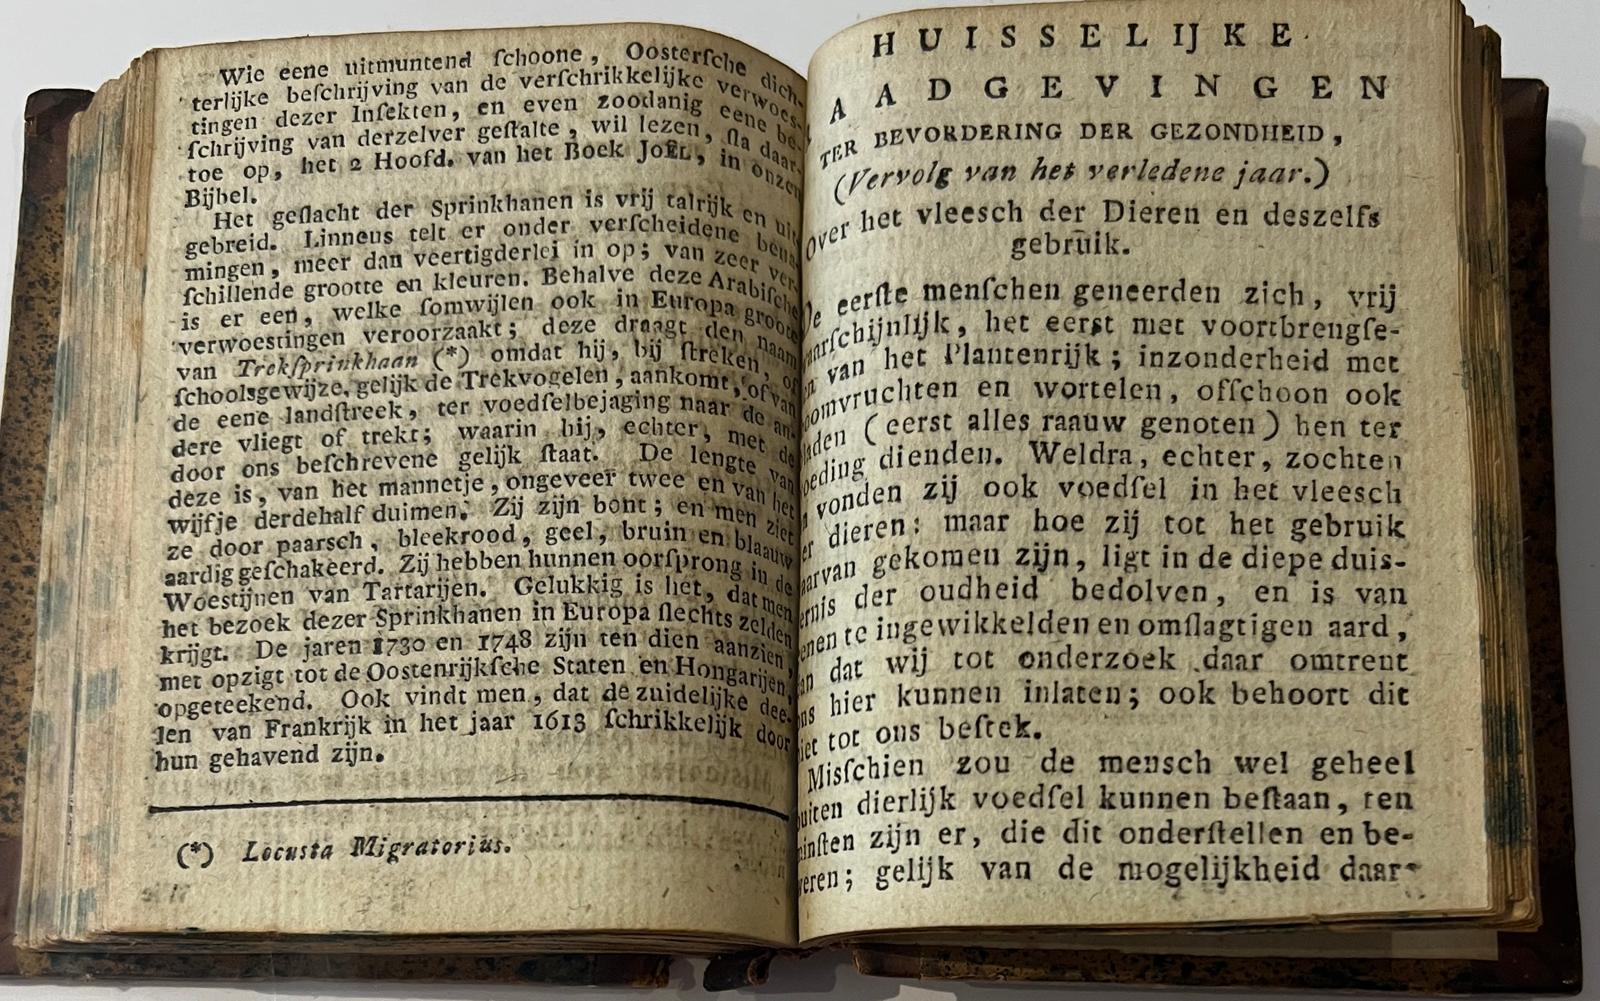 Wie eene uitmuntend ſchoone, Ooſterſche dich-
terlijke beſchrijving van de verſchrikkelijke verwoes-
tingen dezer Inſekten, en even zoodanig eene be-
ſchrijving van derzelver geſtalte, wil lezen, ſla daar-
toe op, het 2 Hoofd. van het Boek JOËL, in onzen
Bijbel.
Het geſlacht der Sprinkhanen is vrij talrijk en uit-
gebreid. Linneus telt er onder verſcheidene bena-
mingen, meer dan veertigderlei in op; van zeer ver-
ſchillende grootte en kleuren. Behalve deze Arabiſche
is er een, welke ſomwijlen ook in Europa groote
verwoestingen veroorzaakt; deze draagt den naam
van Trekſprinkhaan (*) omdat hij, bij ſtreken, of
ſchoolsgewijze, gelijk de Trekvogelen, aankomt, of van
de eene landſtreek, ter voedſelbejaging naar de an-
dere vliegt of trekt; waarin hij, echter, met de
door ons beſchrevene gelijk ſtaat. De lengte van
deze is, van het mannetje, ongeveer twee en van het
wijfje derdehalf duimen. Zij zijn bont; en men ziet
ze door paarsch, bleekrood, geel, bruin en blaauw
aardig geſchakeerd. Zij hebben hunnen oorſprong in de
Woestijnen van Tartarijen. Gelukkig is het, dat men
het bezoek dezer Sprinkhanen in Europa ſlechts zelden
krijgt. De jaren 1730 en 1748 zijn ten dien aanzien,
met opzigt tot de Oostenrijkſche Staten en Hongarijen,
opgeteekend. Ook vindt men, dat de zuidelijke dee-
len van Frankrijk in het jaar 1613 ſchrikkelijk door
hun gehavend zijn.
(*) Locusta Migratorius.
HUISSELIJKE
AADGEVINGEN
TER BEVORDERING DER GEZONDHEID,
(Vervolg van het verledene jaar.)
Over het vleesch der Dieren en deszelfs
gebruik.
De eerſte menſchen geneerden zich, vrij
aarſchijnlijk, het eerst met voortbrengſe-
en van het Plantenrijk; inzonderheid met
oomvruchten en wortelen, offchoon ook
laden (eerst alles raauw genoten) hen ter
oeding dienden. Weldra, echter, zochten
n vonden zij ook voedſel in het vleesch
er dieren: maar hoe zij tot het gebruik
aarvan gekomen zijn, ligt in de diepe duis-
ernis der oudheid bedolven, en is van
enen te ingewikkelden en omſlagtigen aard,
an dat wij tot onderzoek daar omtrent
ns hier kunnen inlaten; ook behoort dit
iet tot ons beſtek.
Misſchien zou de mensch wel geheel
buiten dierlijk voedſel kunnen beſtaan, ten
minſten zijn er, die dit onderſtellen en be-
weren; gelijk van de mogelijkheid daar-